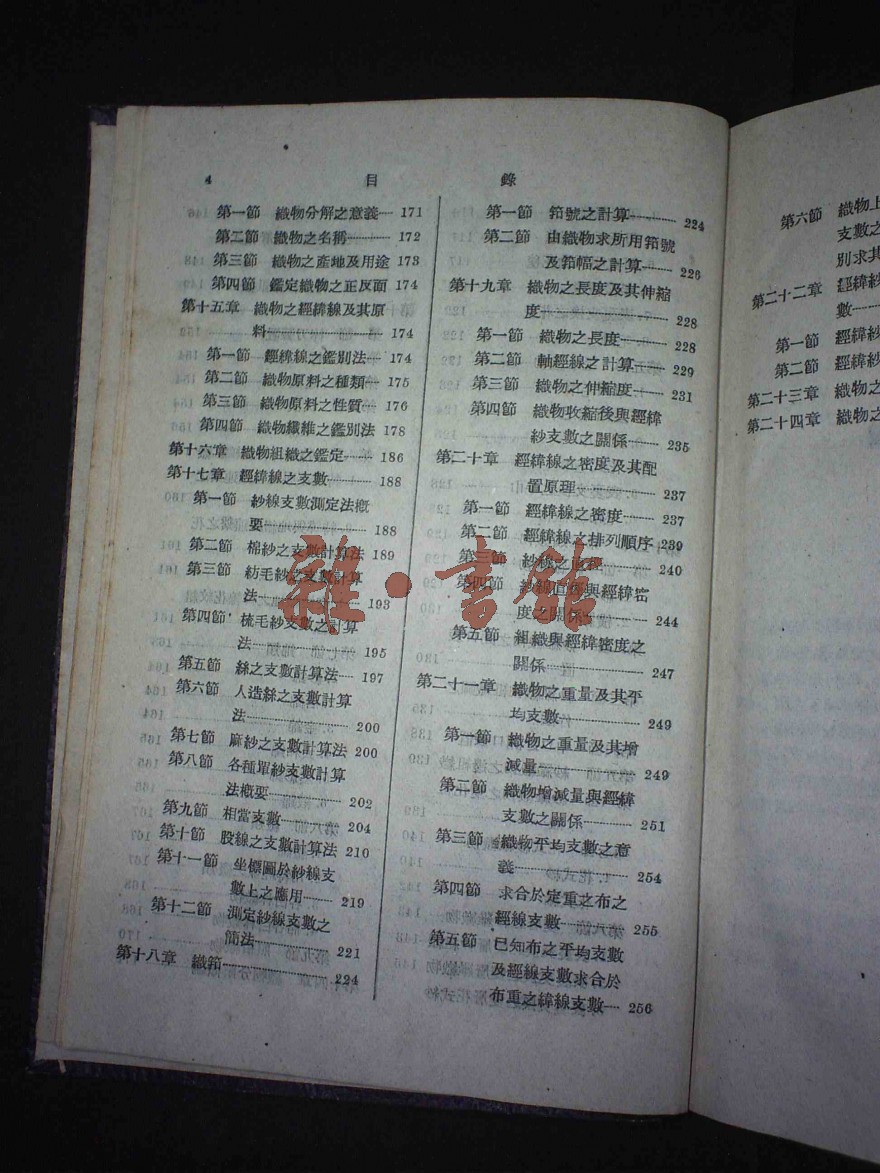 4 目 錄
第一節 織物分解之意義 171
第二節 織物之名稱 172
第三節 織物之產地及用途 173
第四節 鑑定織物之正反面 174
第十五章 織物之經緯線及其原
料 174
第一節 經緯線之鑑別法 174
第二節 織物原料之種類 175
第三節 織物原料之性質 176
第四節 織物纖維之鑑別法 178
第十六章 織物組織之鑑定 186
第十七章 經緯線之支數 188
第一節 紗線支數測定法概
要 188
第二節 棉紗之支數計算法 189
第三節 紡毛紗之支數計算
法 193
第四節 梳毛紗支數之計算
法 195
第五節 絲之支數計算法 197
第六節 人造絲之支數計算
法 200
第七節 麻紗之支數計算法 200
第八節 各種單紗支數計算
法概要 202
第九節 相當支數 204
第十節 股線之支數計算法 210
第十一節 坐標圖於紗線支
數上之應用 219
第十二節 測定紗線支數之
簡法 221
第十八章 織筘 224
第一節 筘號之計算 224
第二節 由織物求所用筘號
及筘幅之計算 226
第十九章 織物之長度及其伸縮
度 228
第一節 織物之長度 228
第二節 軸經線之計算 229
第三節 織物之伸縮度 231
第四節 織物收縮後與經緯
紗支數之關係 235
第二十章 經緯線之密度及其配
置原理 237
第一節 經緯線之密度 237
第二節 經緯線之排列順序 239
第三節 紗線之直徑 240
第四節 紗線直徑與經緯密
度之關係 244
第五節 組織與經緯密度之
關係 247
第二十一章 織物之重量及其平
均支數 249
第一節 織物之重量及其增
減量 249
第二節 織物增減量與經緯
支數之關係 251
第三節 織物平均支數之意
義 254
第四節 求合於定重之布之
經線支數 255
第五節 已知布之平均支數
及經線支數求合於
布重之緯線支數 256
第六節 織物上
支數之
別求其
第二十二章 經緯紗
數
第一節 經緯紗
第二節 經緯紗
第二十三章 織物之
第二十四章 織物之
雜·書館